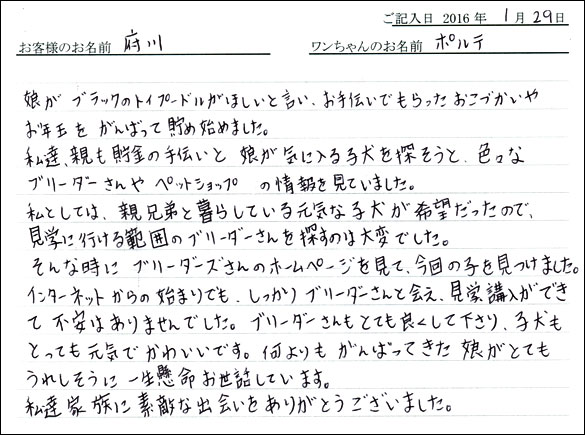 ご記入日 2016 年 1月 29日
お客様のお名前 府川 ワンちゃんのお名前 ポルテ
娘が ブラックのトイプードルがほしいと言い、お手伝いでもらった おこづかいや
お年玉を がんばって貯め始めました。
私達、親も貯金の手伝いと 娘が気に入る子犬を探そうと、色々な
ブリーダーさんや ペットショップ の情報を見ていました。
私としては、親兄弟と暮らしている元気な子犬が希望だったので、
見学に行ける範囲のブリーダーさんを探すのは大変でした。
そんな時に ブリーダーズさんのホームページを見て、今回の子を見つけました。
インターネットからの始まりでも、しっかりブリーダーさんと会え、見学、購入ができ
て 不安はありませんでした。ブリーダーさんもとても良くして下さり、子犬も
とっても元気でかわいいです。何よりも がんばってきた 娘がとても
うれしそうに 一生懸命お世話しています。
私達家族に素敵な出会いをありがとうございました。